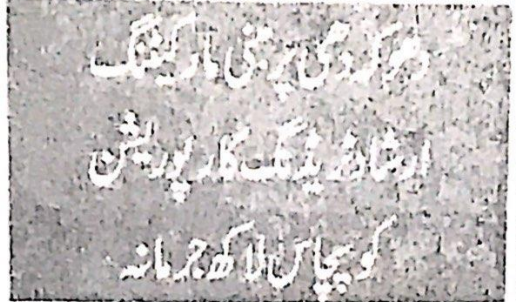 دھوکہ دہی پر مبنی مارکیٹنگ
ارشاد ٹریڈنگ کارپوریشن
کو پچاس لاکھ جرمانہ